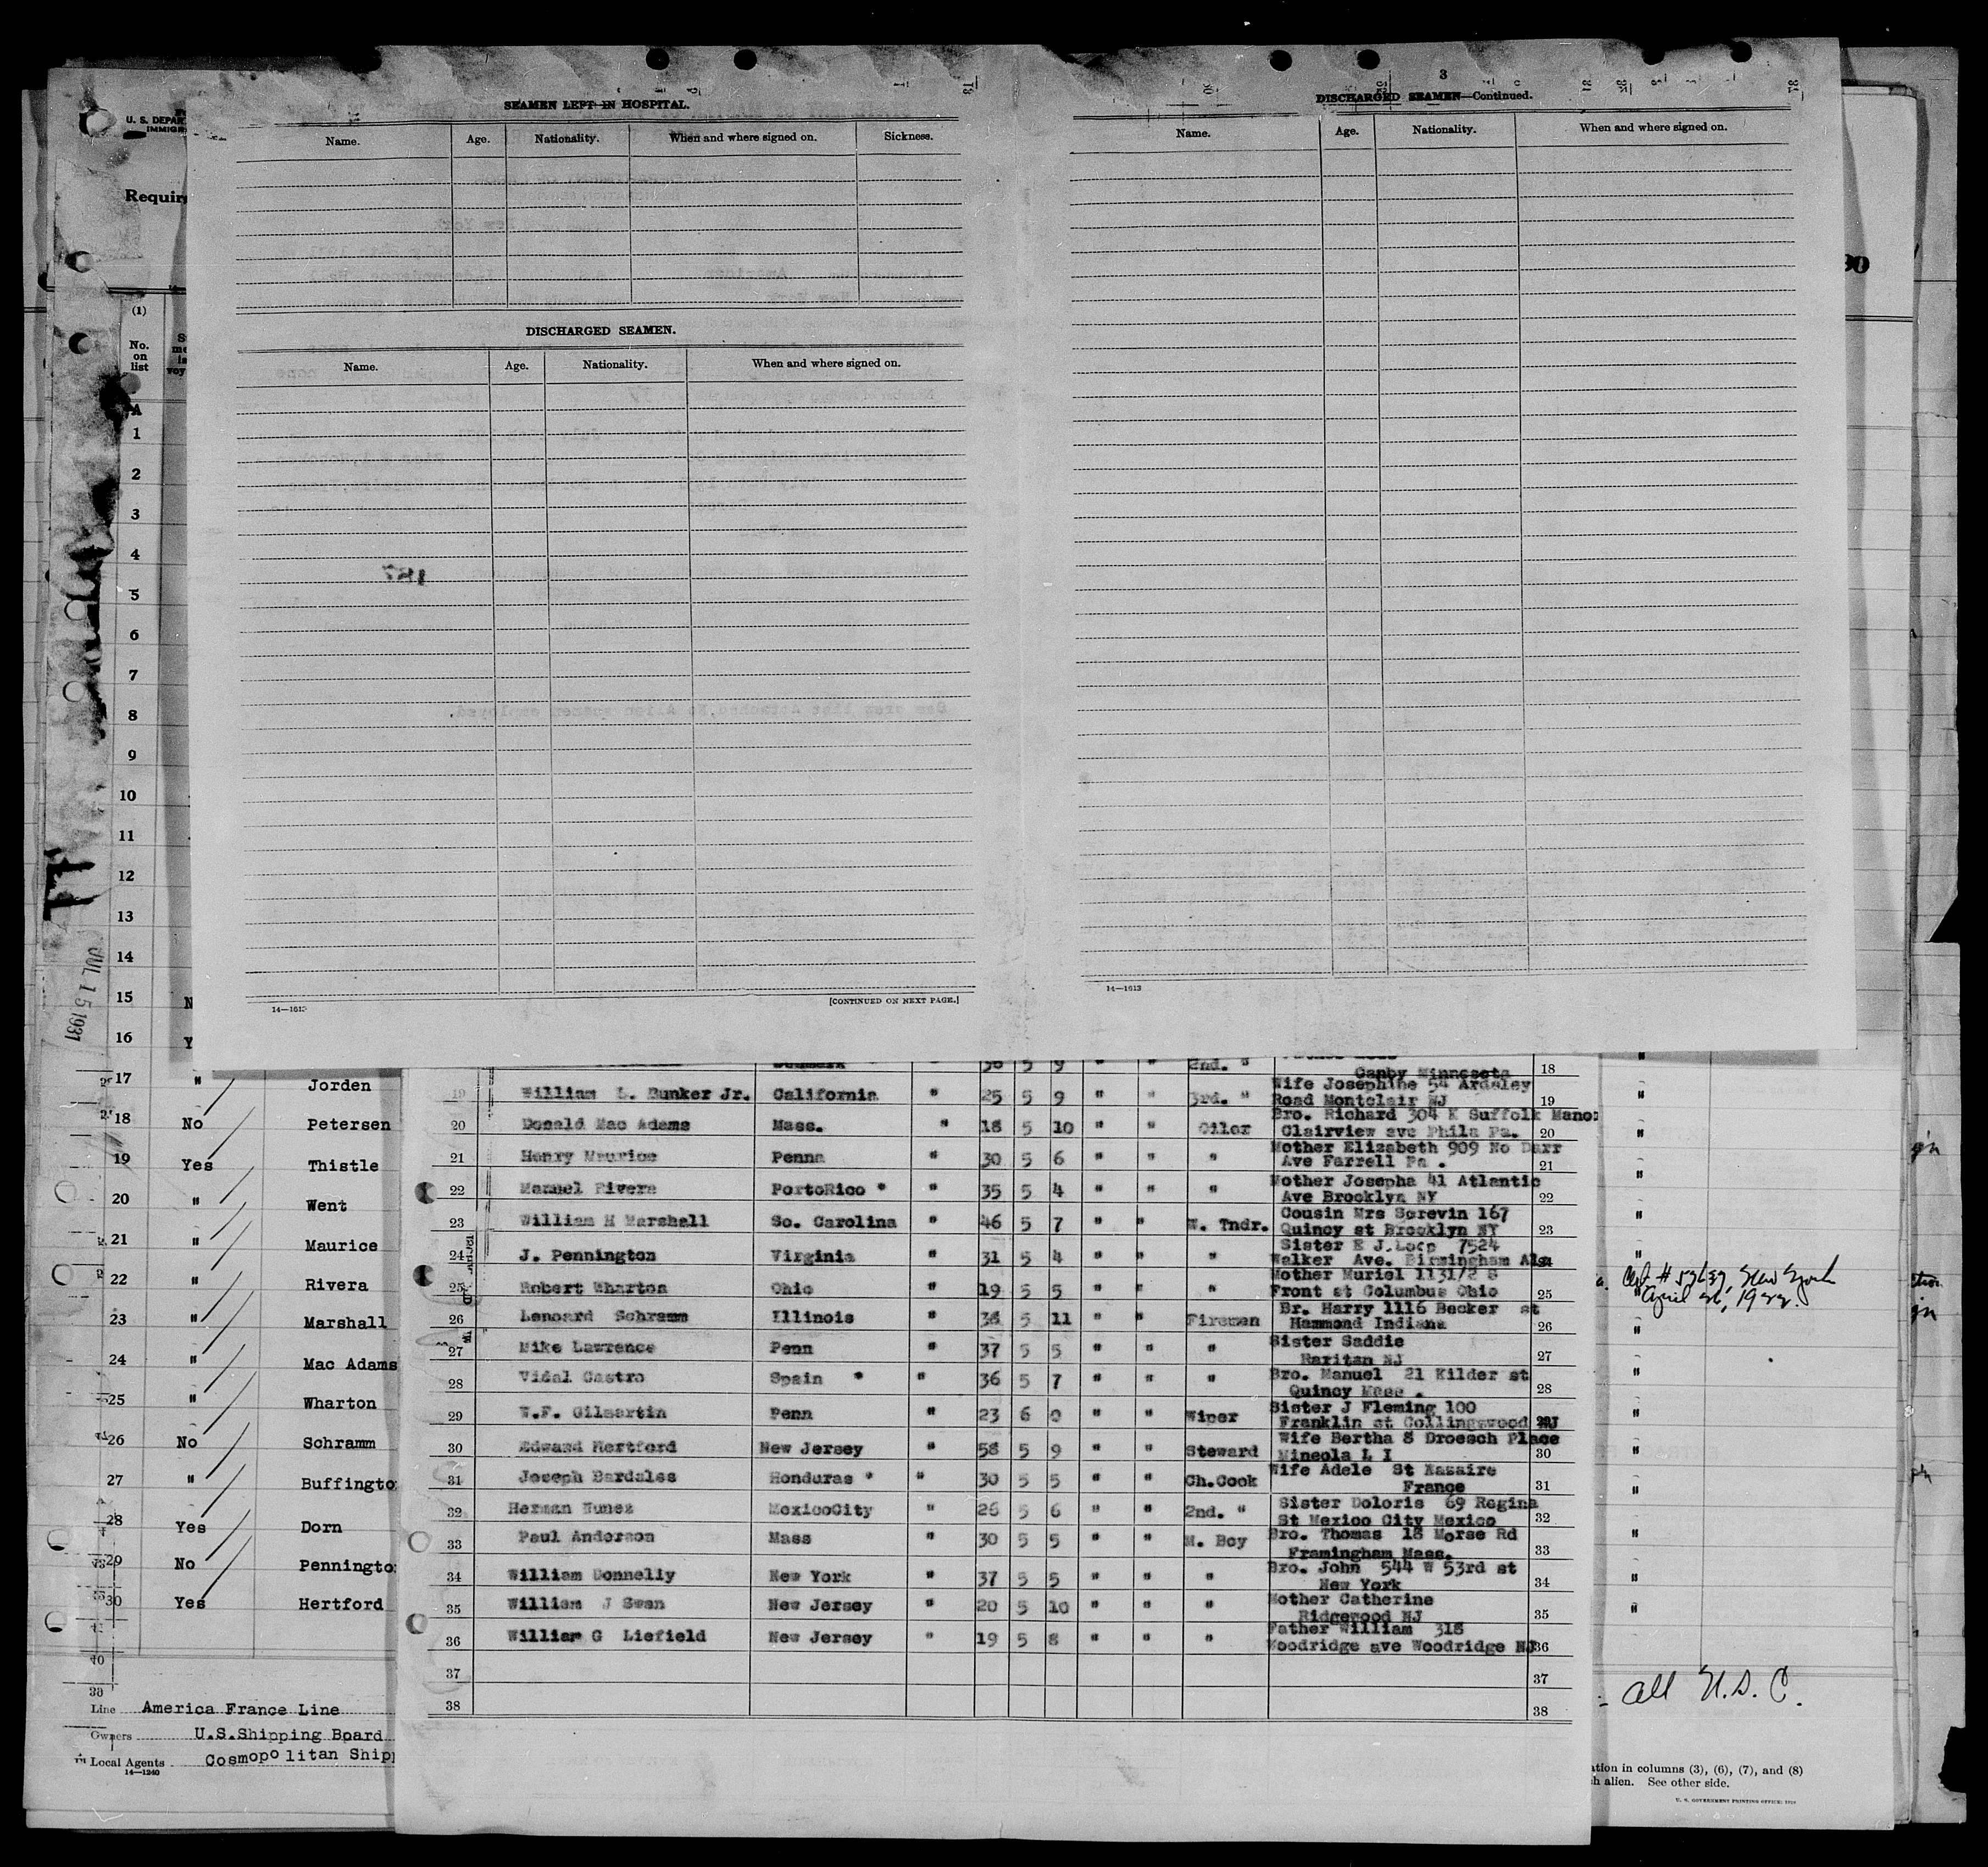 SEAMEN LEFT IN HOSPITAL.
Name. Age. Nationality. When and where signed on. Sickness.
DISCHARGED SEAMEN.
Name. Age. Nationality. When and where signed on.
[CONTINUED ON NEXT PAGE.]
3
DISCHARGED SEAMEN—Continued.
Name. Age. Nationality. When and where signed on.
14—1613
U. S. DEPAR
IMMIGR
Requir
(1)
No. on list
A
1
2
3
4
5
6
7
8
9
10
11
12
13
14
15 N
16 Y
JUL 15 1931
17 " Jorden
18 No Petersen
19 Yes Thistle
20 " Went
21 " Maurice
22 " Rivera
23 " Marshall
24 " Mac Adams
25 " Wharton
26 No Schramm
27 " Buffingto
28 Yes Dorn
29 No Penningto
30 Yes Hertford
Line America France Line
Owners U.S.Shipping Board
Local Agents Cosmopolitan Shipp
14—1240
36 5 9 " " 2nd. " Canby Minnesota 18
19 William L. Bunker Jr. California " 25 5 9 " " 3rd. " Wife Josephine 54 Ardsley
Road Montclair NJ 19
20 Donald Mac Adams Mass. " 18 5 10 " " Oiler Bro. Richard 304 K Suffolk Manor
Clairview ave Phila Pa. 20
21 Henry Maurice Penna " 30 5 6 " " " Mother Elizabeth 909 No Darr
Ave Farrell Pa . 21
22 Manuel Rivera PortoRico * " 35 5 4 " " " Mother Josepha 41 Atlantic
Ave Brooklyn NY 22
23 William H Marshall So. Carolina " 46 5 7 " " W. Tndr. Cousin Mrs Serevin 167
Quincy st Brooklyn NY 23
24 J. Pennington Virginia " 31 5 4 " " " Sister E J. Loep 7524
Walker Ave. Birmingham Ala
25 Robert Wharton Ohio " 19 5 5 " " " Mother Muriel 1131/2 S
Front st Columbus Ohio 25
26 Lenoard Schramm Illinois " 38 5 11 " " Firemen Br. Harry 1116 Becker st
Hammond Indiana 26
27 Mike Lawrence Penn " 37 5 5 " " " Sister Saddie
Raritan NJ 27
28 Vidal Castro Spain * " 36 5 7 " " " Bro. Manuel 21 Kilder st
Quincy Mass . 28
29 W.F. Gilmartin Penn " 23 6 0 " " Wiper Sister J Fleming 100
Franklin st Collingswood NJ 29
30 Edward Hertford New Jersey " 58 5 9 " " Steward Wife Bertha 8 Droesch Place
Mineola L I 30
31 Joseph Bardales Honduras * " 30 5 5 " " Ch.Cook Wife Adele St Nazaire
France 31
32 Herman Nunez MexicoCity " 26 5 6 " " 2nd. " Sister Doloris 69 Regina
St Mexico City Mexico 32
33 Paul Anderson Mass " 30 5 5 " " M. Boy Bro. Thomas 18 Morse Rd
Framingham Mass. 33
34 William Donnelly New York " 37 5 5 " " " Bro. John 544 W 53rd st
New York 34
35 William J Swan New Jersey " 20 5 10 " " " Mother Catherine
Ridgewood NJ 35
36 William G Liefield New Jersey " 19 5 8 " " " Father William 318
Woodridge ave Woodridge NJ 36
37 37
38 38
New York
April 26, 1922.
all U.S.C.
ation in columns (3), (6), (7), and (8)
h alien. See other side.
U. S. GOVERNMENT PRINTING OFFICE: